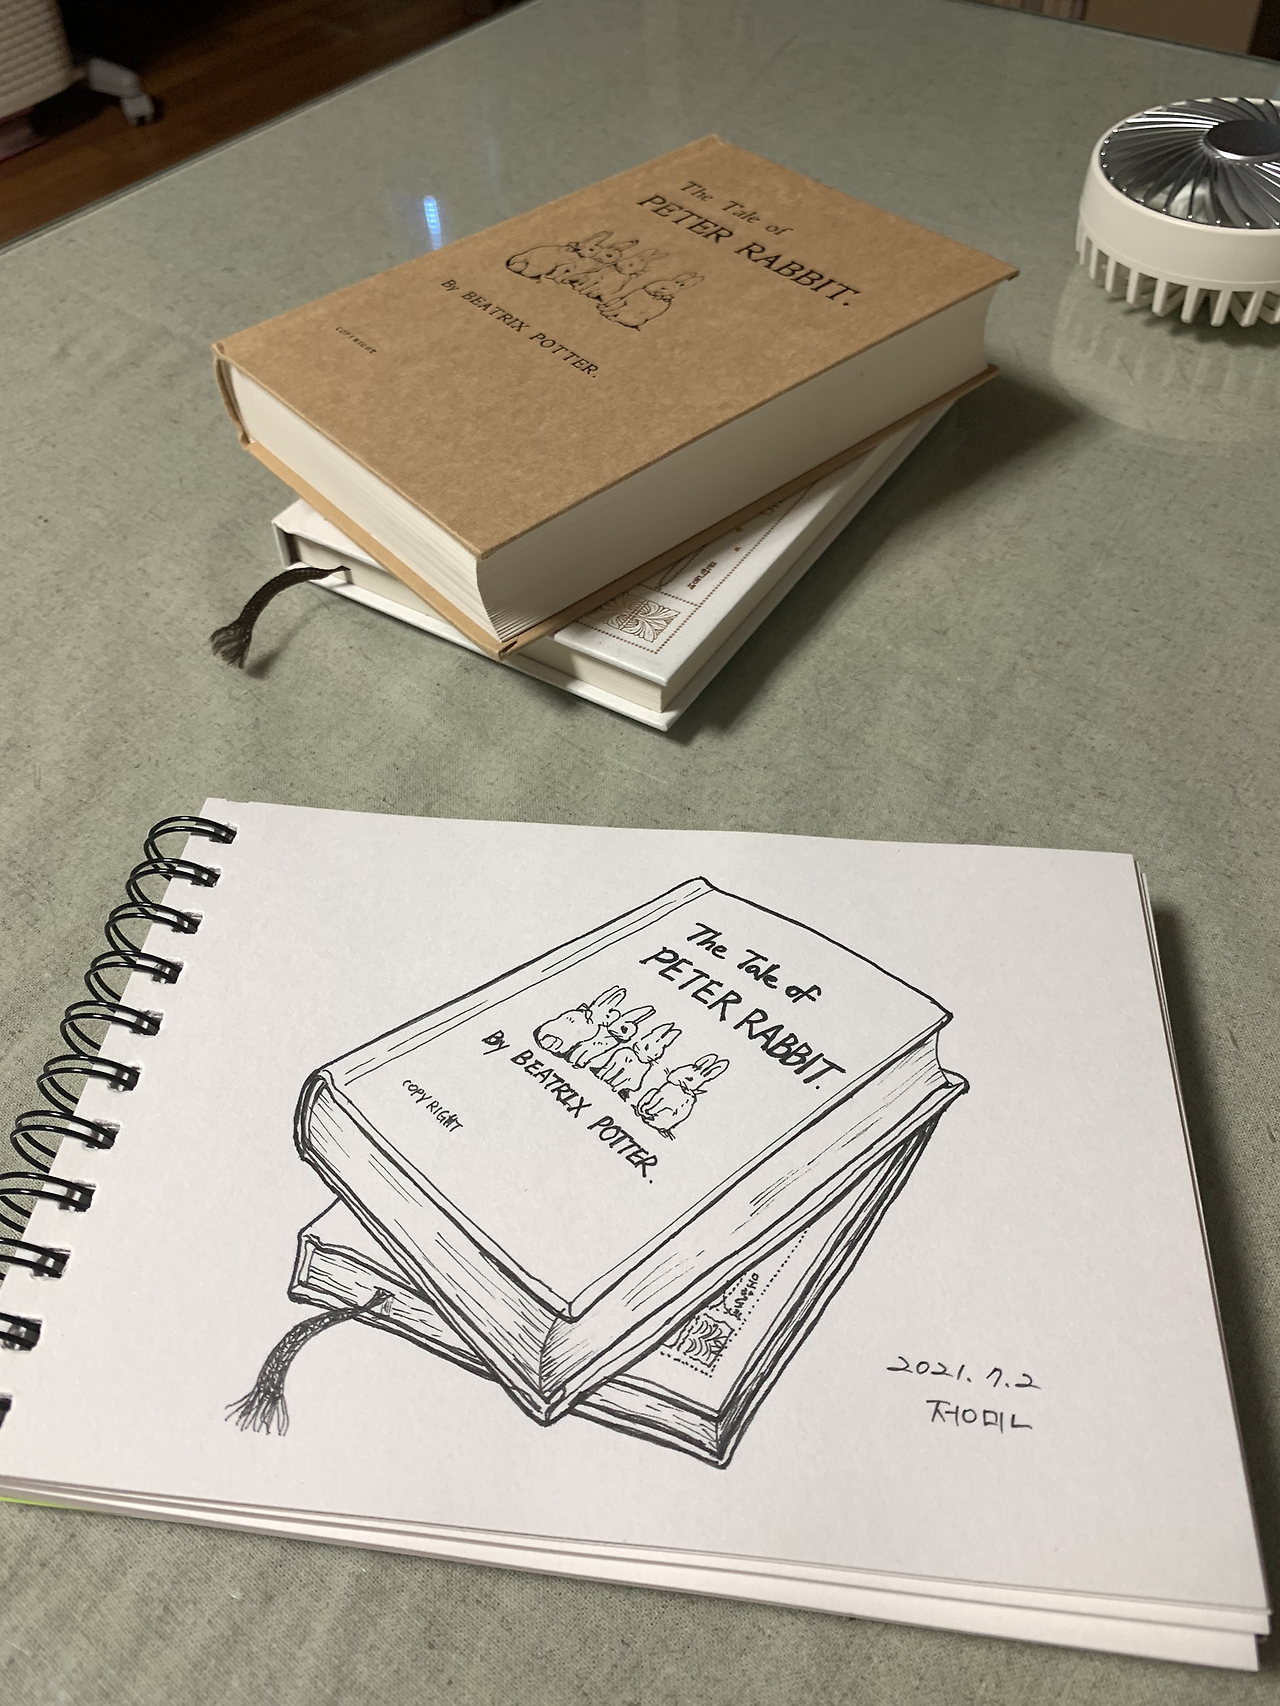 The Tale of
PETER RABBIT.
By BEATRIX POTTER.
COPYRIGHT
The Tale of
PETER RABBIT.
By BEATRIX POTTER.
COPYRIGHT
2021. 7. 2